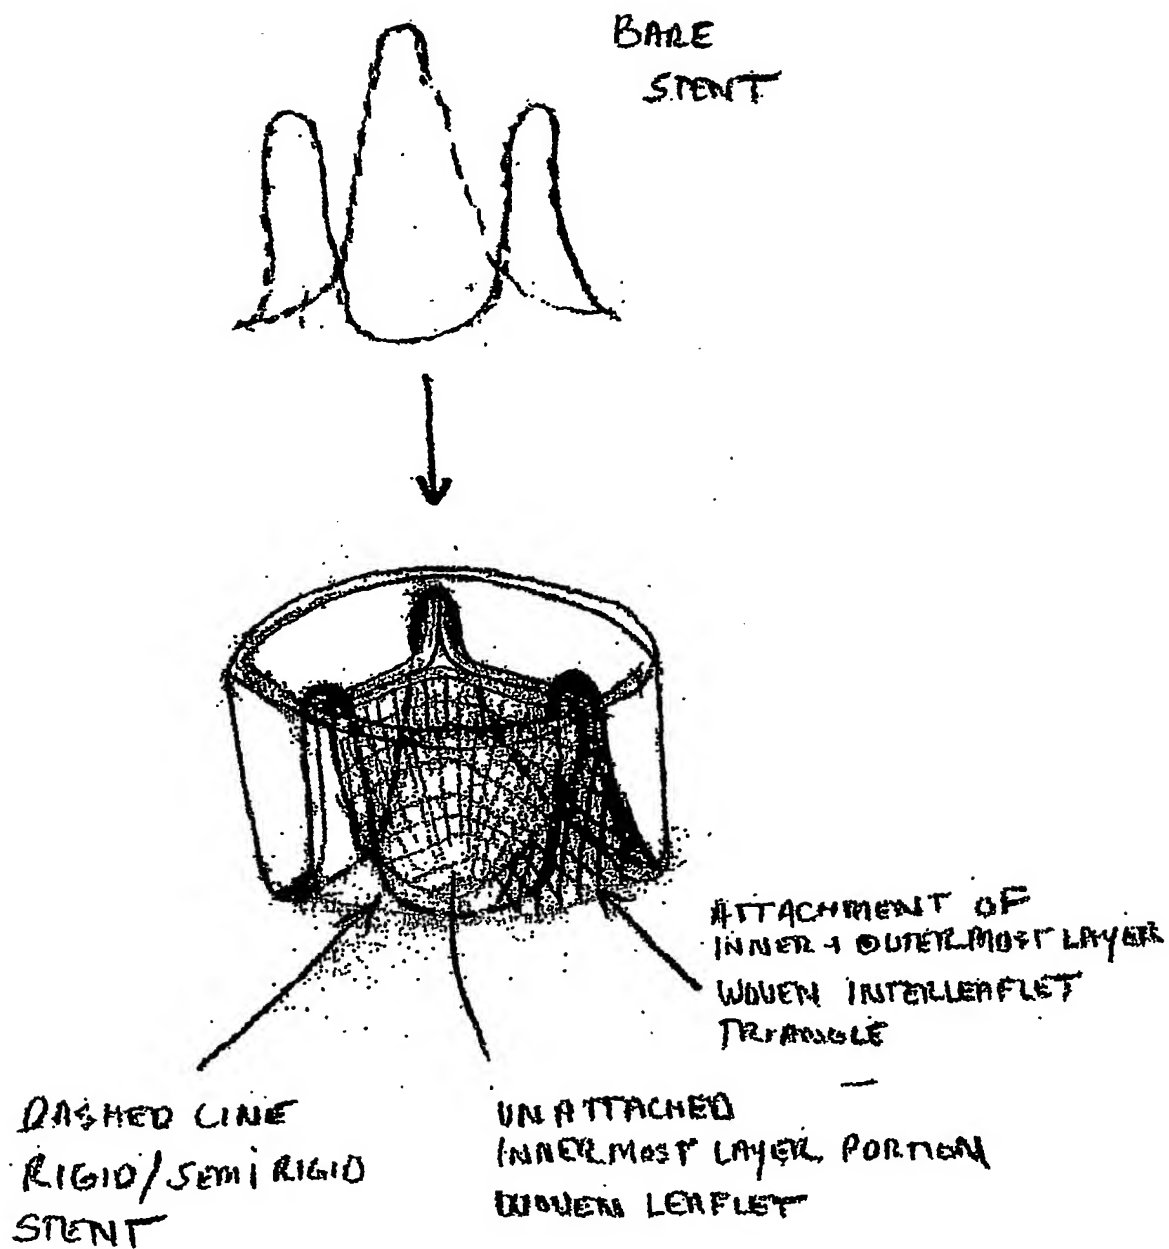 BARE
STENT
ATTACHMENT OF
INNER + OUTERMOST LAYER
WOVEN INTERLEAFLET
TRIANGLE
DASHED LINE
RIGID/SEMI RIGID
STENT
UNATTACHED
INNERMOST LAYER PORTION
WOVEN LEAFLET